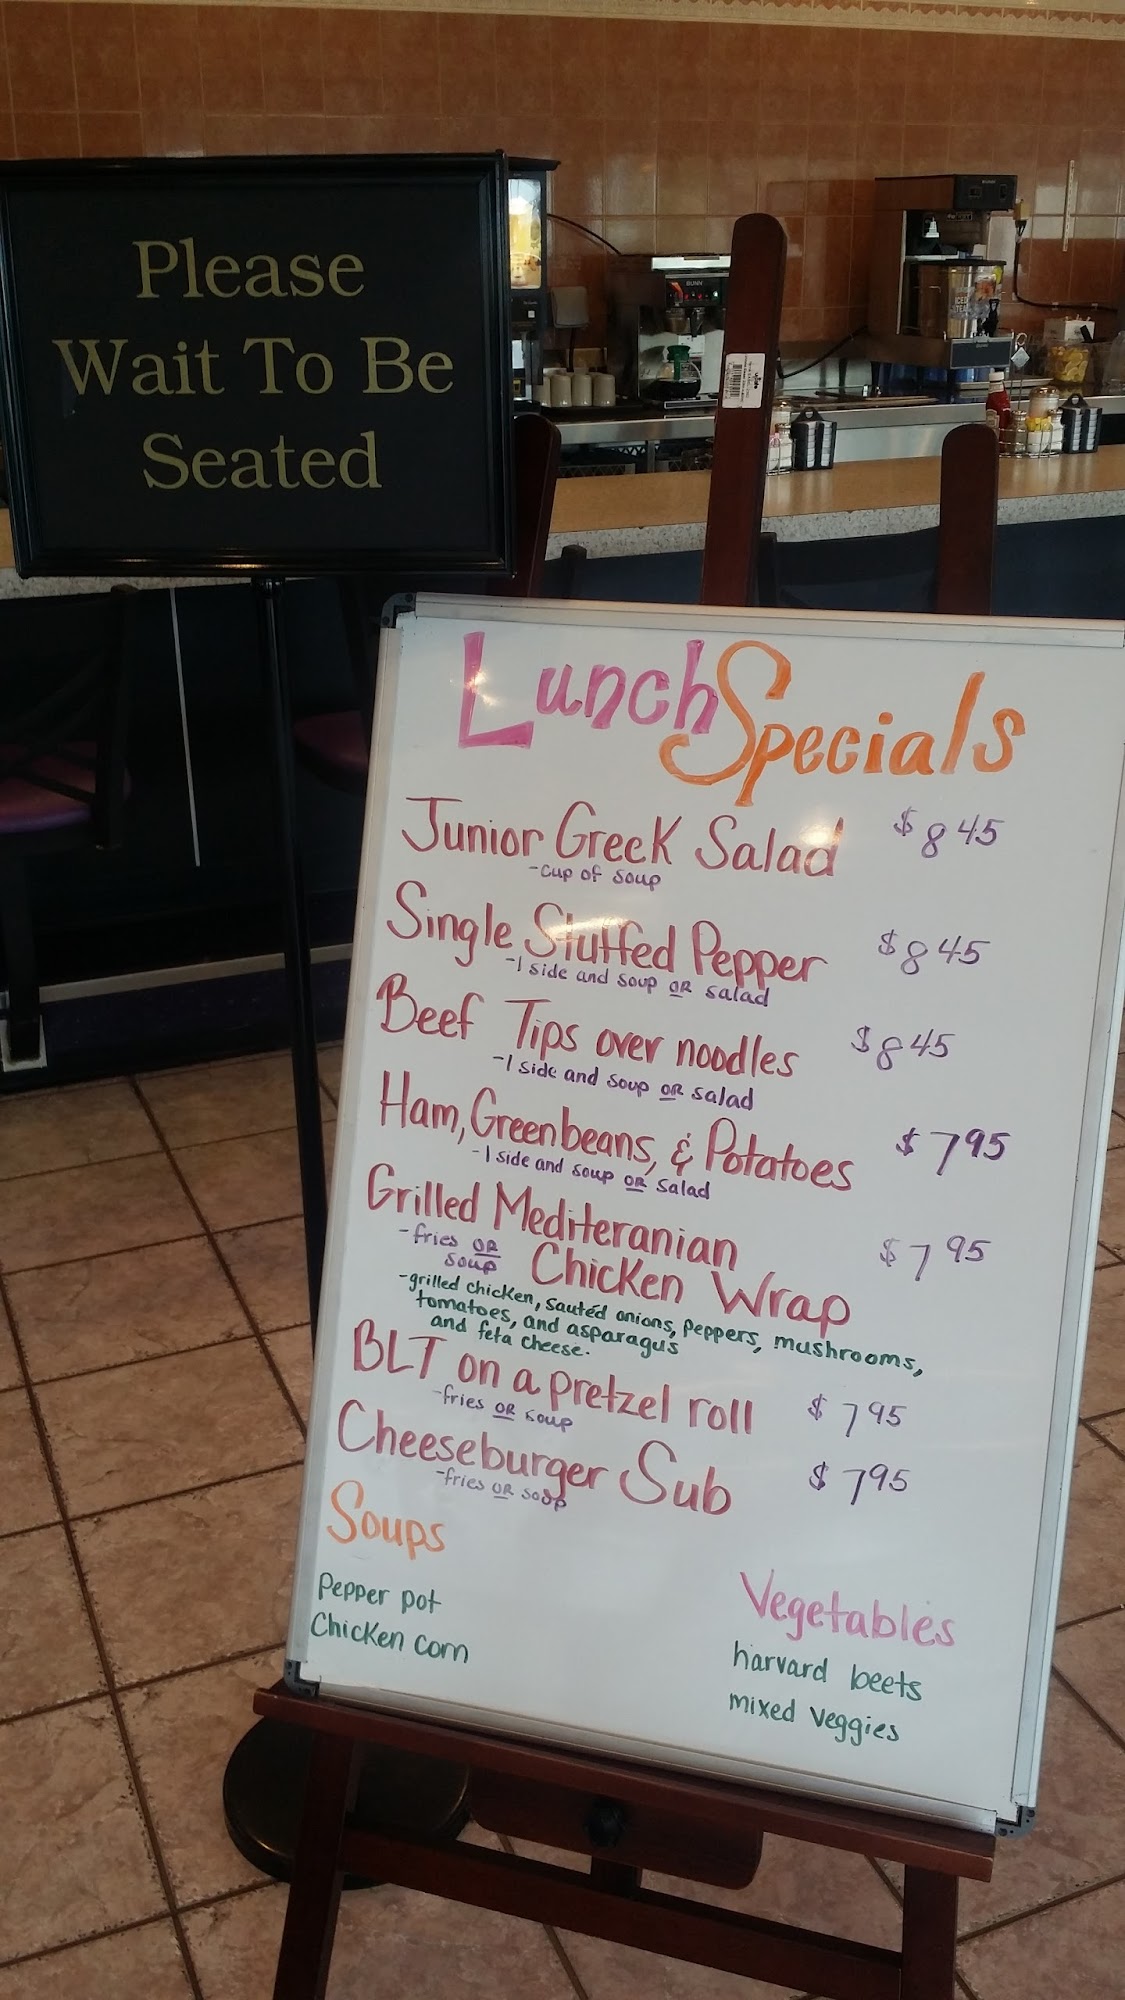 Please
Wait To Be
Seated
BUNN
ICED
TEA
Lunch Specials
Junior Greek Salad $8 45
-cup of soup
Single Stuffed Pepper $8 45
-1 side and soup OR salad
Beef Tips over noodles $8 45
-1 side and soup OR salad
Ham, Greenbeans, & Potatoes $7 95
-1 side and soup OR salad
Grilled Mediteranian
Chicken Wrap $7 95
-fries OR
soup
-grilled chicken, sautéd onions, peppers, mushrooms,
tomatoes, and asparagus
and feta cheese.
BLT on a pretzel roll $7 95
-fries OR soup
Cheeseburger Sub $7 95
-fries OR soup
Soups
Pepper pot
Chicken corn
Vegetables
harvard beets
mixed veggies